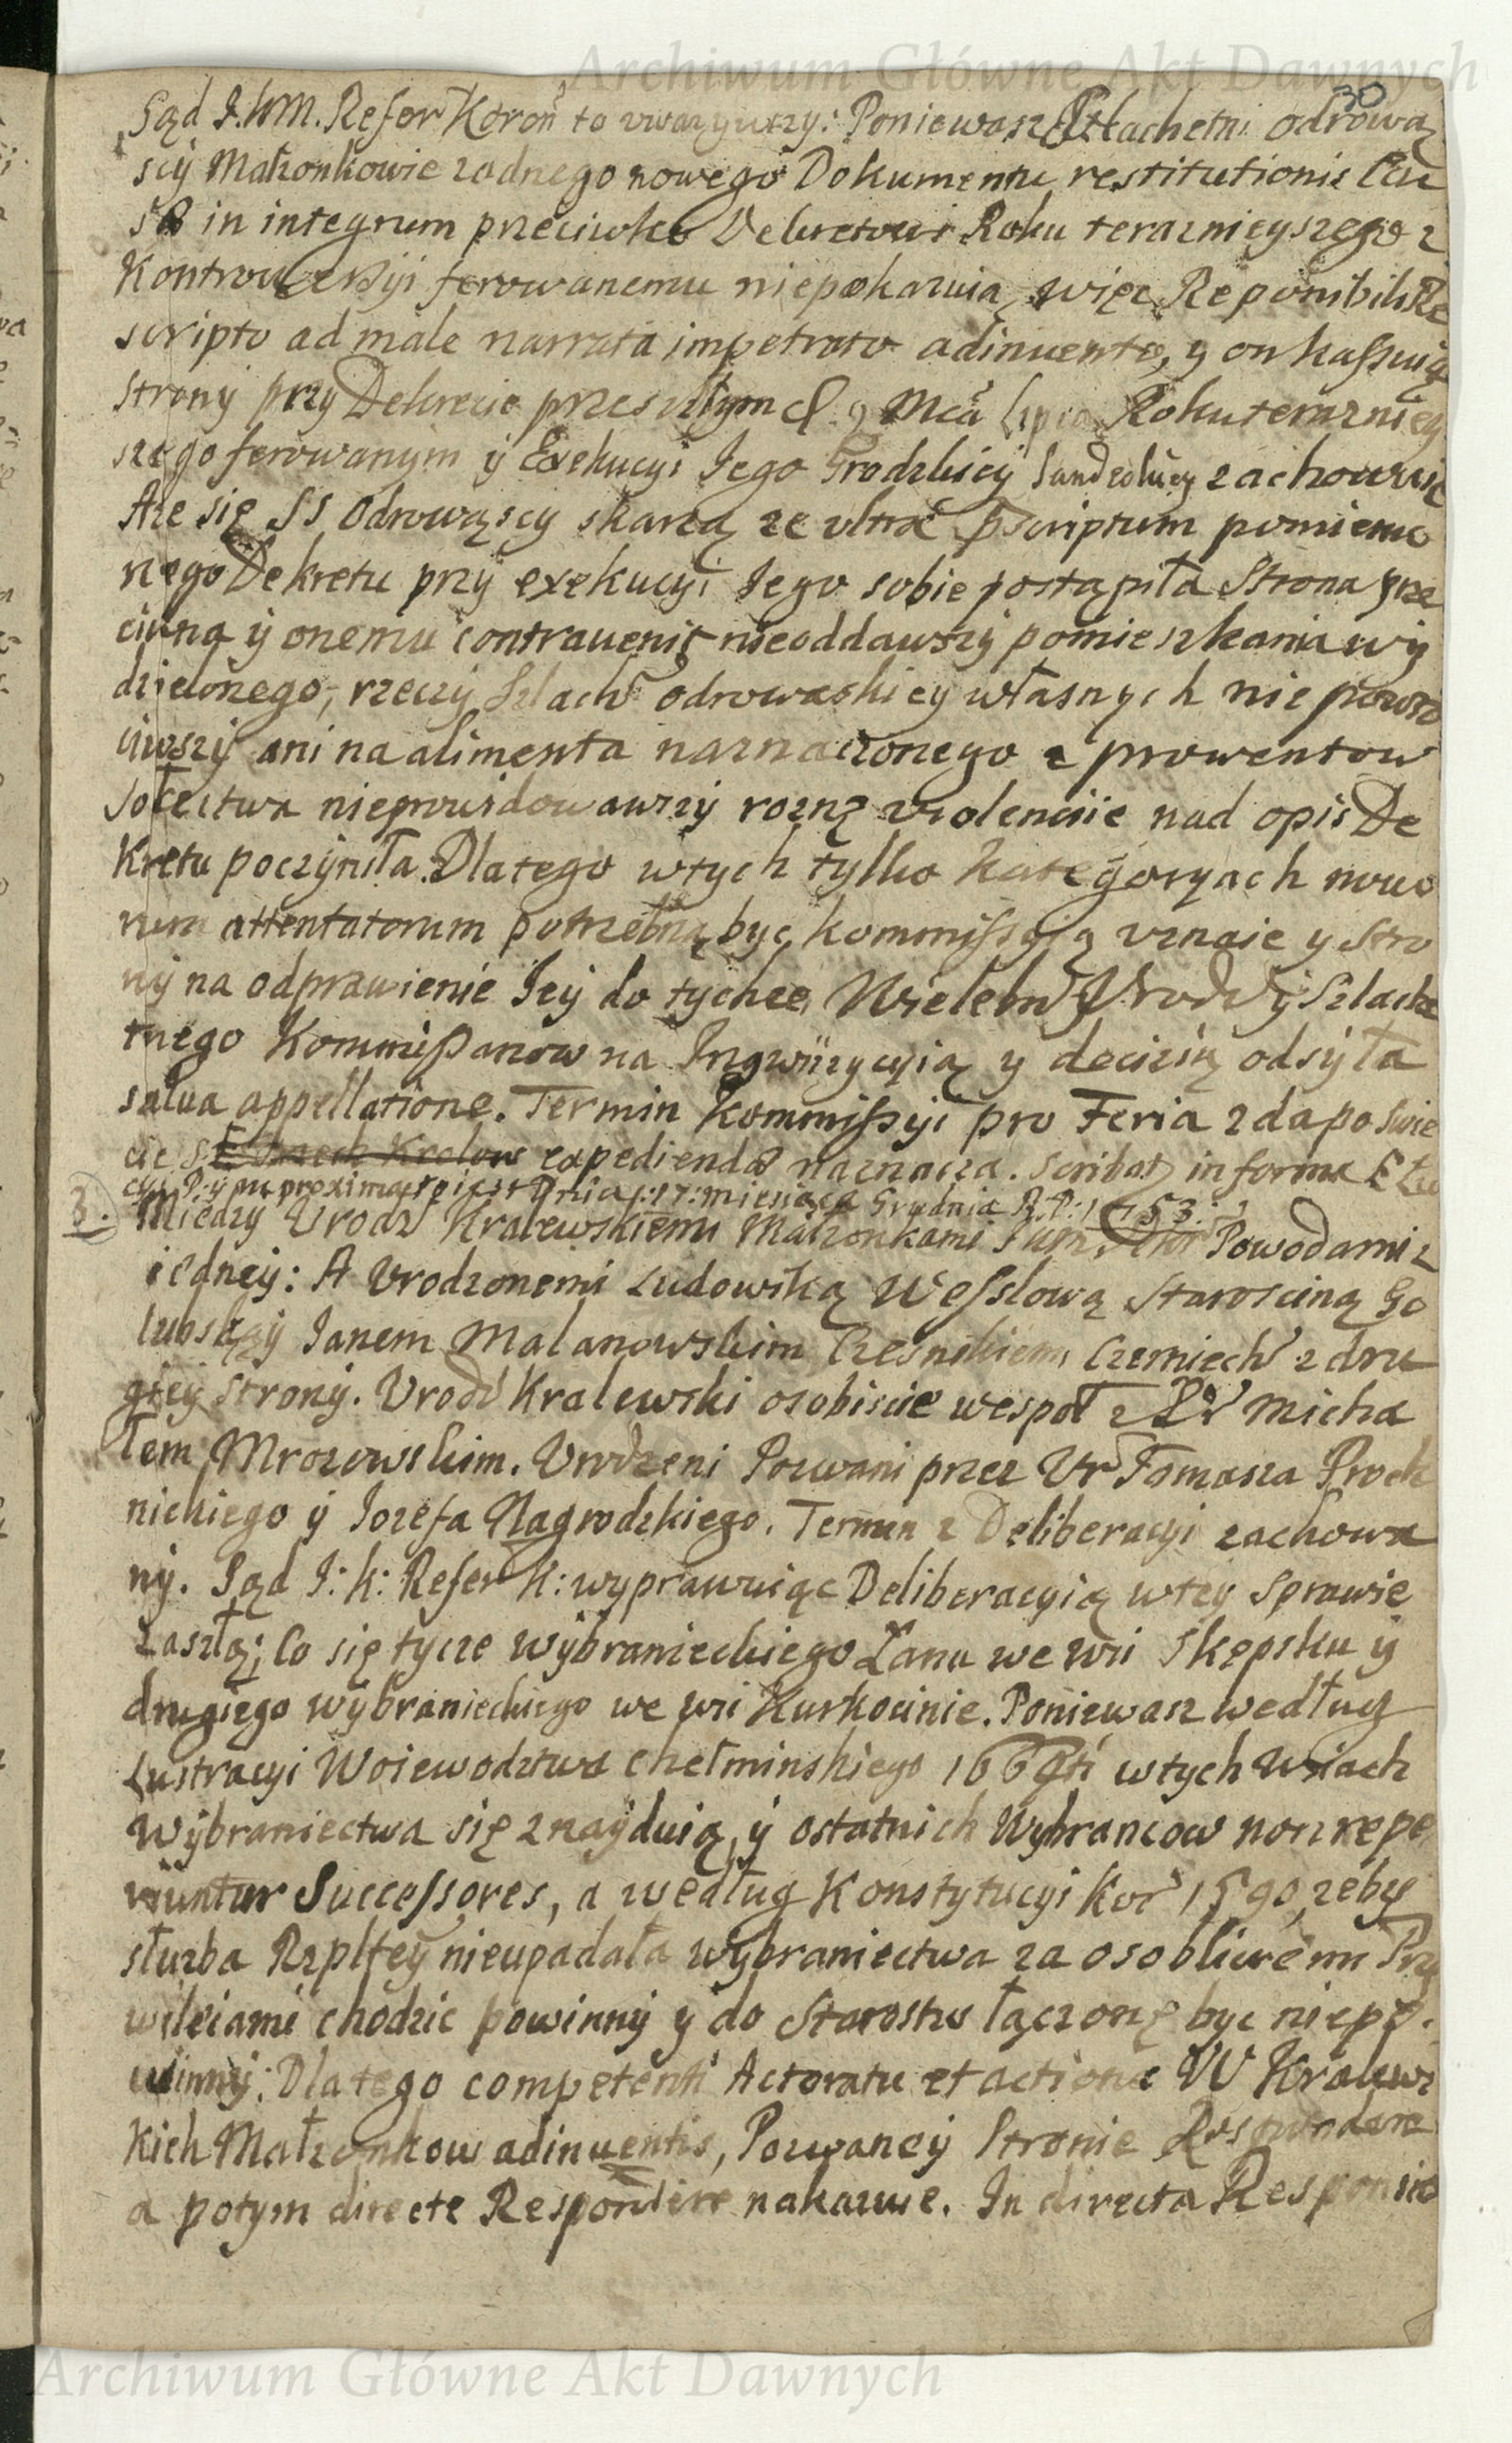 Archiwum Główne Akt Dawnych
30
Sąd J.KM. Refer Koroñ to uwazywszy: Poniewasz Szlachetni Odrową
scy Małzonkowie zodnego nowego Dokumentu restitutionis Cau
sæ in integrum przeciwko Dekretowi Roku terazniejszego z
Kontrowersyi ferowanemu niepokazuią, więc Reponibili Re
scripto ad male narrata impetrato adinvento, y on kassuiąc
Strony przy Dekrecie przeszłym d. 9 Mcã Lipca Roku terazniey
szego ferowanym y Exekucyi Iego Grodzkiey Sandeckiey zachowuie
Aze się SS Odrowąscy skarzą ze ultra pscriptum pomienio
nego Dekretu przy exekucyi Iego sobie postąpiła Strona prze
ciwna y onemu contravenit nieoddawszy pomieszkania wy
dzielonego, rzeczy Szlach Odrowaskiey własnych nie powro
ciwszy ani na alimenta naznaczonego z prowentow
Sołectwa nieprowidowawszy rozne violencije nad opis De
kretu poczyniła. Dlatego wtych tylko kategoryach novo
rum attentatorum potrzebną byc kommissyią uznaie y Stro
ny na odprawienie Iey do tychze Wielebn Urodz y Szlache
tnego Kommissarzow na Inqwizycyią y decizią odsyła
salva appellatione. Termin Kommissyi pro Feria 2da po Swie
cie S. Trzech Krolow expediendæ naznacza. Scribat in forma
cye P. y pu proximæ Dnia :17: miesiąca Grudnia R.P: 1753.
3. Między Urodz Kralewskiemi Małzonkami Powodami z
iedney: A Urodzonemi Ludowiką Wesslową Starosciną Go
lubską y Ianem Malanowskim Czesnikiem Czerniech z dru
giey strony. Urodz Kralewski osobiscie wespoł z Ur Micha
łem Mrozowskim. Urodzeni Pozwani przez Ur Tomasza Proch
nickiego y Iozefa Nagrodzkiego. Termin z Deliberacyi zachowa
ny. Sąd J: K: Refer K: wyprawuiąc Deliberacyią wtey sprawie
zaszłą; Co się tycze Wybranieckiego Łanu we wsi Skępsku y
drugiego wybranieckiego we wsi Kurkocinie. Poniewasz według
Lustracyi Woiewodztwa Chełminskiego 1664ti wtych Wsiach
Wybraniectwa się znayduią, y ostatnich Wybrancow non repe
riuntur Successores, a według Konstytucyi Kor 1590, zeby
słuzba Rzpltey nieupadała wybraniectwa za osobliwemi Przy
wileiami chodzic powinny y do Starostw łączone byc niepo.
winny: Dlatego competenti Actoratu et actione W Kralews
kich Małzonkow adinventis, Pozwaney Stronie Respondere
a potym directe Respondere nakazuie. In directa Responsio
Archiwum Główne Akt Dawnych